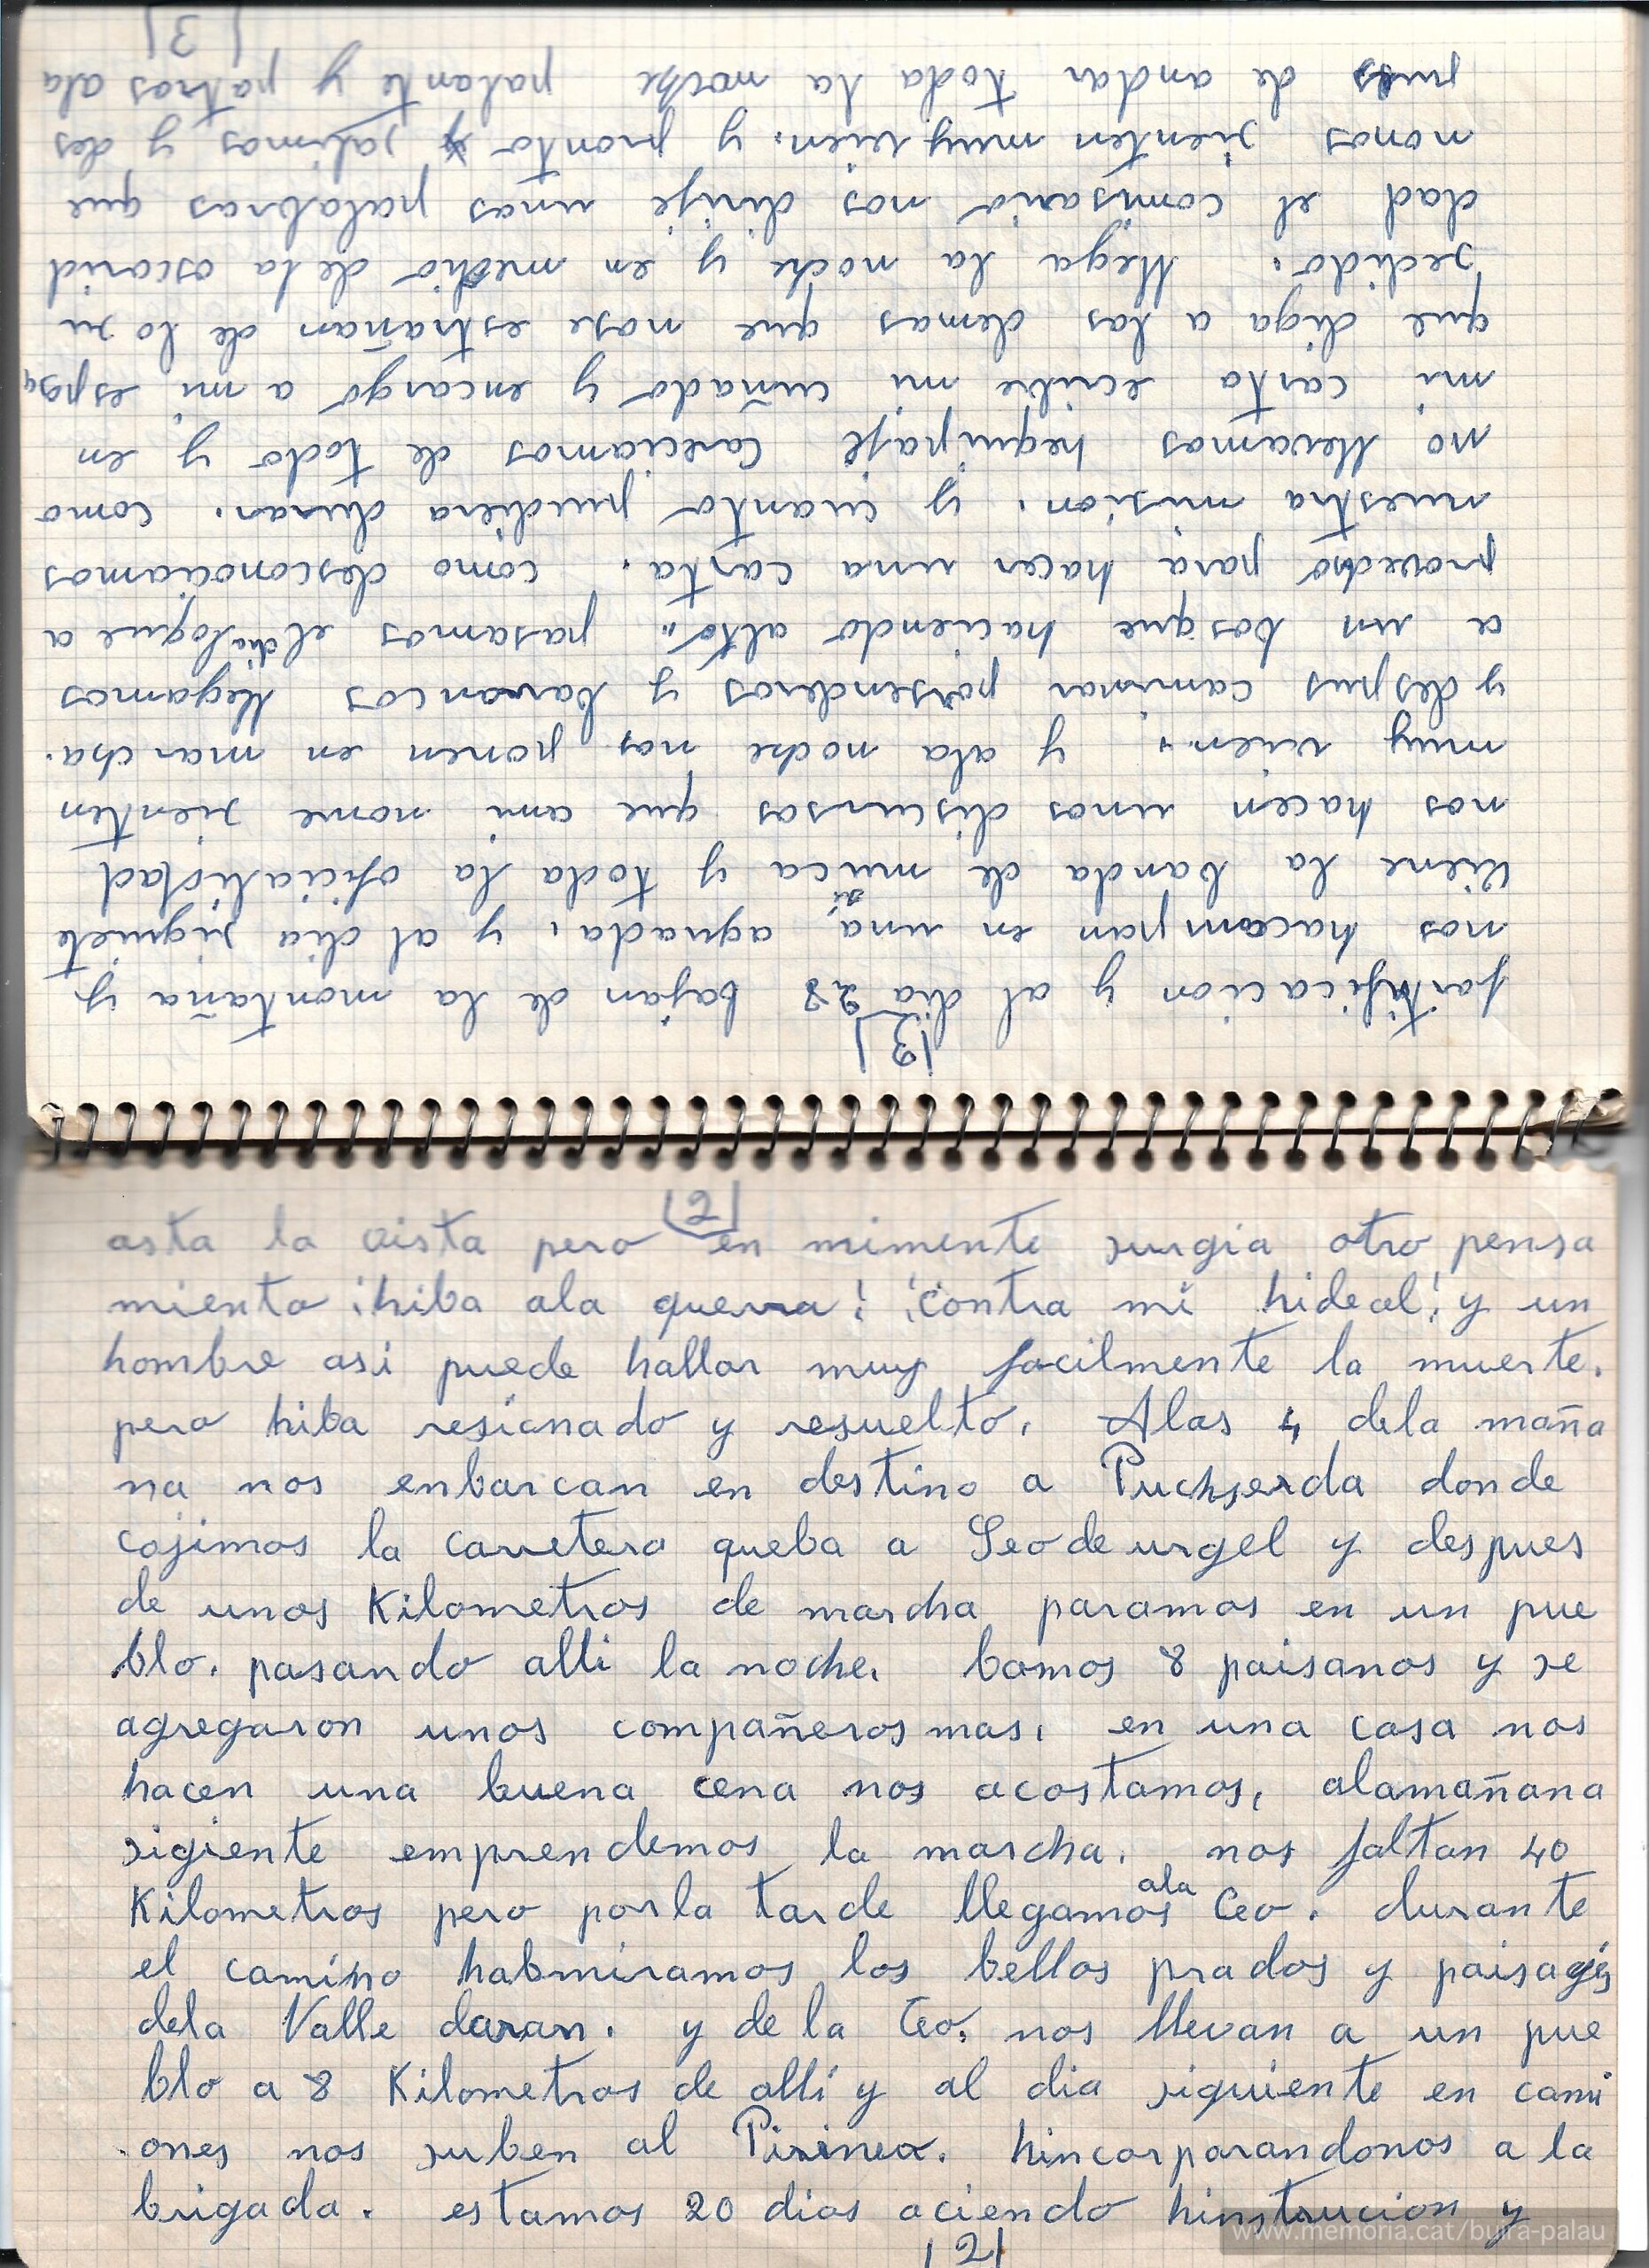 |2|
asta la vista pero en mimente surgia otro pensa
miento ¡hiba ala guerra! ¡contra mi hideal! y un
hombre asi puede hallar muy facilmente la muerte.
pero hiba resicnado y resuelto. Alas 4 dela maña
na nos enbarcan en destino a Puchserda donde
cojimos la carretera queba a Seo de urgel y despues
de unos Kilometros de marcha paramos en un pue
blo. pasando alli la noche. bamos 8 paisanos y se
agregaron unos compañeros mas. en una casa nos
hacen una buena cena nos acostamos, alamañana
sigiente emprendemos la marcha. nos faltan 40
Kilometros pero porla tarde llegamos ala Ceo. durante
el camino habmiramos los bellos prados y paisages
dela Valle daran. y de la Ceo. nos llevan a un pue
blo a 8 Kilometros de allí y al dia siguiente en cami
ones nos suben al Pirineo. hincorporandonos a la
brigada. estamos 20 dias aciendo hinstrucion y
|2|
|3|
fortificacion y al dia 28 bajan de la montaña y
nos hacampan en una aguada, y al dia siguiete
viene la banda de musica y toda la oficialidad
nos hacen unos discursos que ami nome sienten
muy vien. y ala noche nos ponen en marcha.
y despus caminar porsenderos y barancos llegamos
a un bosque haciendo alto. pasamos el dia loque a
provecho para hacer una carta. como desconociamos
nuestra mision. y cuanto pudiera durar. como
no llevamos hequipaje careciamos de todo y en
mi carta ecribe mi cuñado y encargo a mi esposa
que diga a las demas que nose estrañan de lo su
sedido. llega la noche y en medio de la oscurid
dad el comisario nos dirije unas palabras que
nonos sienten muy vien. y pronto salimos y des
pues de andar toda la noche palante y patras ala
|3|
www.memoria.cat/buira-palau